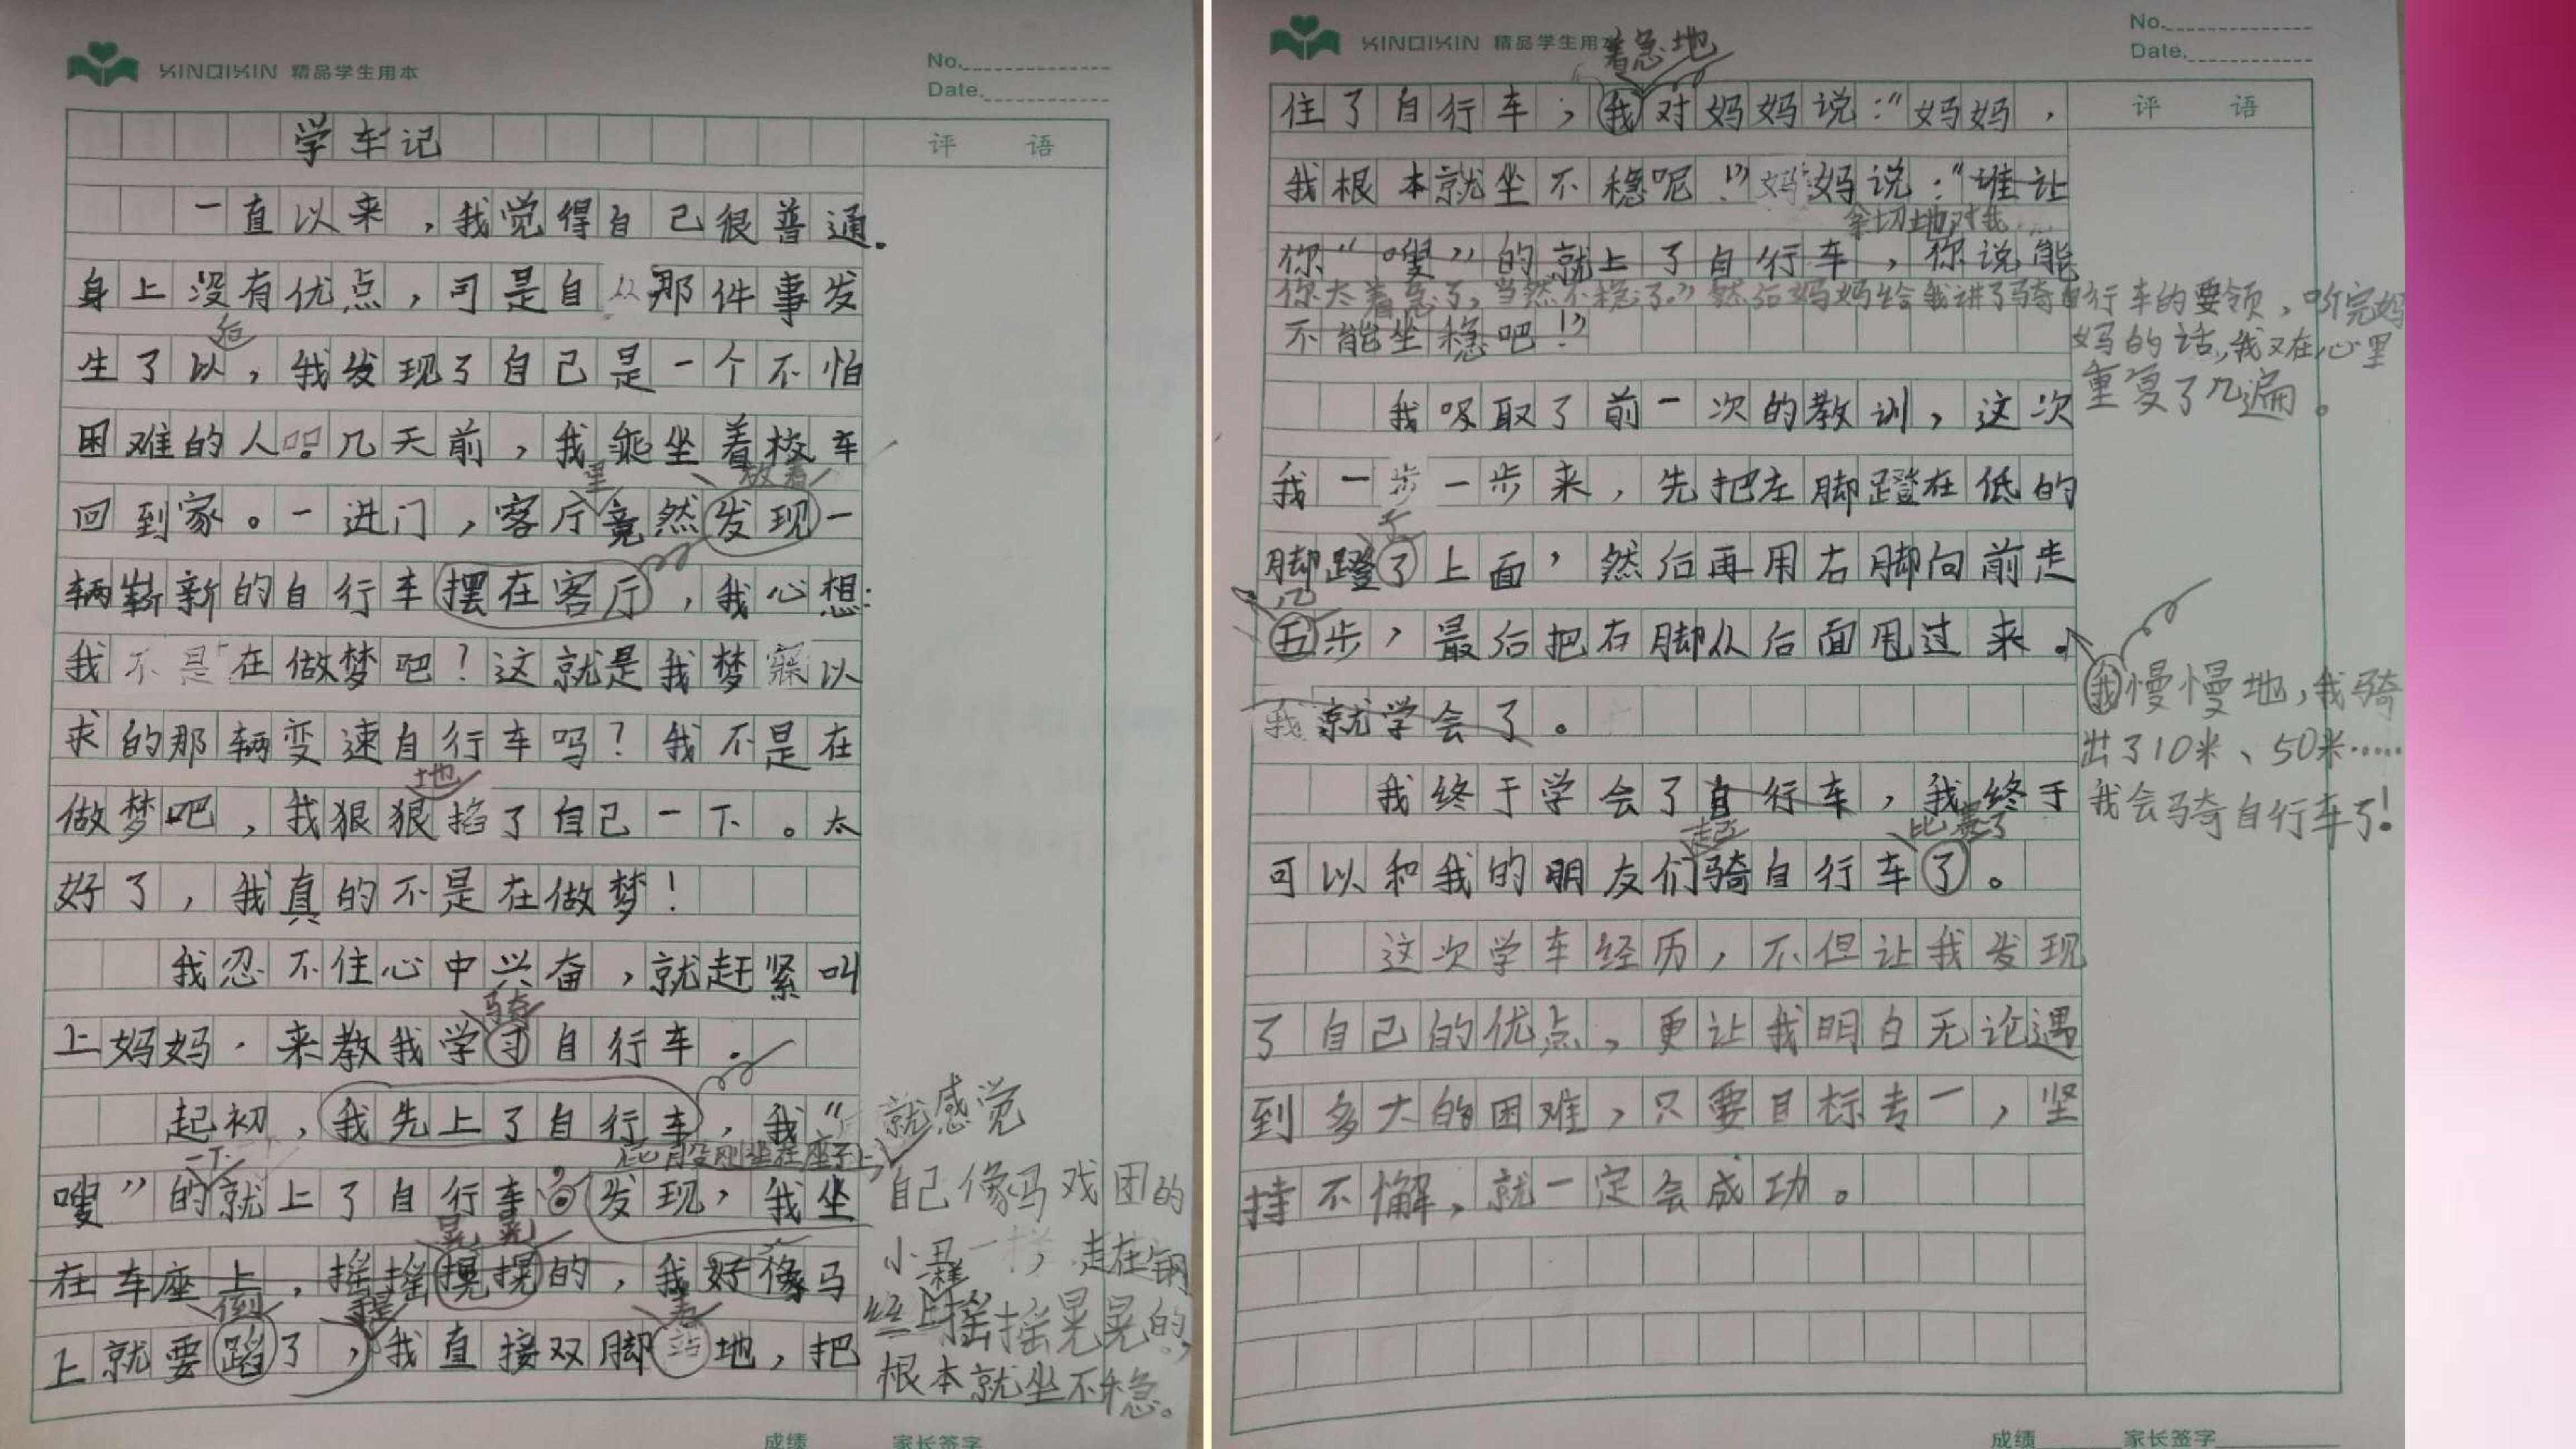 XINQIXIN 精品学生用本
No.
Date.
评 语
学车记
一直以来，我觉得自己很普通。
身上没有优点，可是自从那件事发
后
生了以，我发现了自己是一个不怕
困难的人。几天前，我乘坐着校车
里 放着
回到家。一进门，客厅竟然发现一
辆崭新的自行车摆在客厅，我心想：
我不是在做梦吧？这就是我梦寐以
求的那辆变速自行车吗？我不是在
地
做梦吧，我狠狠掐了自己一下。太
好了，我真的不是在做梦！
我忍不住心中兴奋，就赶紧叫
骑
上妈妈，来教我学习自行车。
起初，我先上了自行车，我“
就感觉
一下 屁股刚坐在座子上
嗖”的就上了自行车。发现，我坐
自己像马戏团的
晃晃
在车座上，摇摇摸摸的，我好像马
小丑一样，走在钢
倒
上就要蹈了，我直接双脚站地，把
丝上摇摇晃晃的，
根本就坐不稳。
成绩 家长签字
XINQIXIN 精品学生用本
No.
Date.
评 语
着急地
住了自行车，我对妈妈说：“妈妈，
我根本就坐不稳呢！”妈妈说：“谁让
亲切地对我
你“嗖”的就上了自行车，你说能
你太着急了，当然不稳了。”然后妈妈给我讲了骑自行车的要领，听完妈
不能坐稳吧！”
妈的话，我又在心里
重复了几遍。
我吸取了前一次的教训，这次
我一步一步来，先把左脚蹬在低的
脚蹬了上面，然后再用右脚向前走
几
五步，最后把右脚从后面甩过来。
我慢慢地，我骑
我就学会了。
出了10米、50米……
我终于学会了自行车，我终于
我会骑自行车了！
比赛了
可以和我的朋友们骑自行车了。
这次学车经历，不但让我发现
了自己的优点，更让我明白无论遇
到多大的困难，只要目标专一，坚
持不懈，就一定会成功。
成绩 家长签字